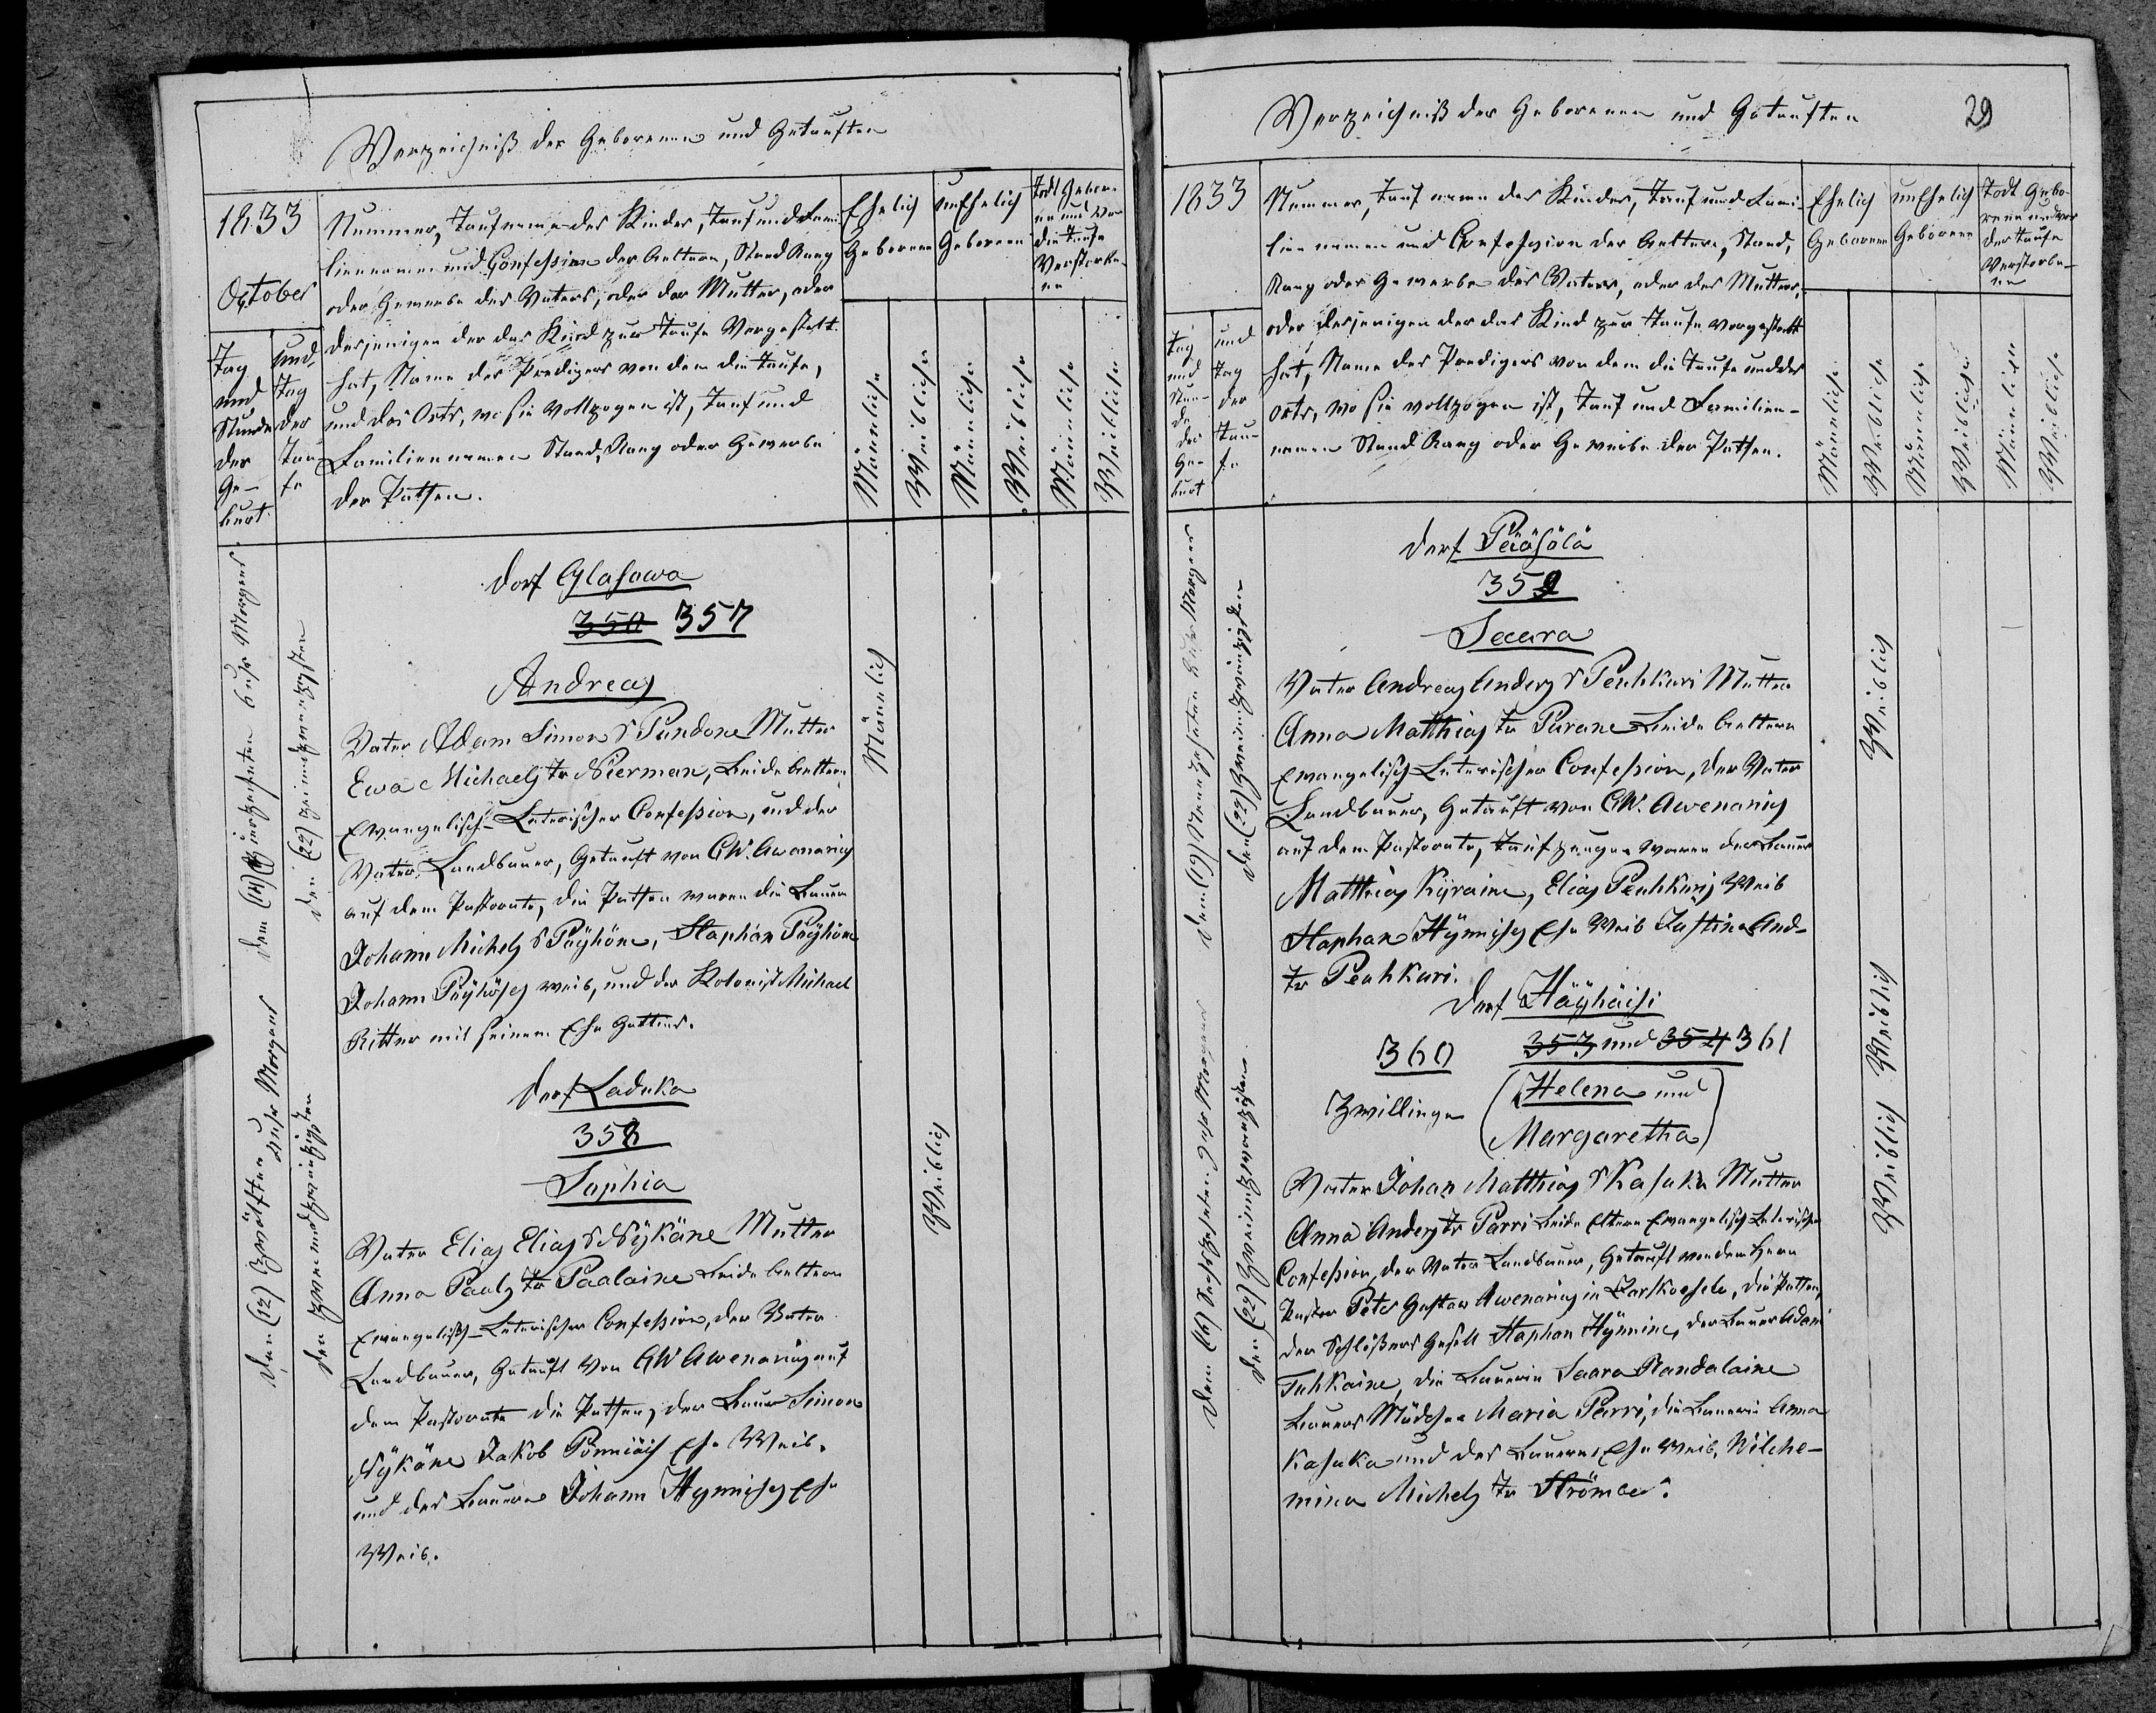 Verzeichniß der Geborenen und Getauften
1833
October
Tag und Stunde der Ge-
burt
und Tag der Tau-
fe
Nummer, Taufname des Kindes, Tauf und Fami-
liennamen und Confession der Aeltern, Stand Rang
oder Gewerbe des Vaters, oder der Mutter, oder
desjenigen der das Kind zur Taufe Vorgestelt
hat, Name des Predigers von dem die Taufe,
und des Orts, wo sie vollzogen ist, Tauf und
Familiennamen Stand, Rang oder Gewerbe
der Pathen.
Ehelich
Geborene
unEhelich
Geborene
Todt Gebore-
ne und vor
der Taufe
Verstorbe-
ne
Männliche
Weibliche
Männliche
Weibliche
Männliche
Weibliche
dem (14) Vierzehnten 6 Uhr Morgens
den (22) zweiundzwanzigsten
Dorf Glasowa
350 357
Andreas
Männlich
Vater Adam Simons S Pundone Mutter
Ewa Michaels Tr Nierman, beide Aeltern
Evangelisch-Luterischer Confession, und der
Vater Landbauer, Getauft von GW. Awenarius
auf dem Pastorate, die Pathen waren die Bauern
Johann Michels S Pöyhöne, Staphan Pöyhöne
Johann Pöyhöses weib, und der Kolonist Michael
Ritter mit seinem Ehe Gattins.
den (12) Zwölften Uhr Morgens
den Zweiundzwanzigsten
Dorf Laduka
358
Sophia
Weiblich
Vater Elias Elias S Nykäne Mutter
Anna Pauls Tr Paalaine beide Aeltern
Evangelisch-Luterischer Confession, der Vater
Landbauer, Getauft von GW Awenarius auf
dem Pastorate die Pathen, der Bauer Simon
Nykäne Jakob Ehe Weib.
und des Bauern Johann Hynnises Ehe
Weib.
Verzeichniß der Geborenen und Getauften
29
1833
Tag und Stun-
de der Ge-
burt
und Tag der Tau-
fe
Nummer, Tauf namen des Kindes, Tauf und Fami-
lien namen und Confession der Aeltern, Stand,
Rang oder Gewerbe des Vaters, oder der Mutter,
oder desjenigen der das Kind zur Taufe vorgestelt
hat, Name des Predigers von dem die Taufe und des
Orts, wo sie vollzogen ist, Tauf und Familien-
namen Stand Rang oder Gewerbe der Pathen.
Ehelich
Geborene
unEhelich
Geborene
Todt Gebo-
rene und vor
der Taufe
Verstorbe-
ne
Männliche
Weibliche
Männliche
Weibliche
Männliche
Weibliche
dem (19) Neunzehnten Uhr Morgens
den (22) Zweiundzwanzigsten
Dorf Pääsölä
359
Saara
Weiblich
Vater Andreas Anders S Peuhkuri Mutter
Anna Matthias Tr Purane beide Aeltern
Evangelisch-Luterischer Confession, der Vater
Landbauer, Getauft von GW. Awenarius
auf dem Pastorate, Taufzeugen waren der Bauer
Matthias Kyraine, Elias Peuhkuris Weib
Staphan Hynnises Ehe Weib Justina And-
Tr Peuhkuri.
dem (16) Sechszehnten Uhr Morgens
den (22) Zweiundzwanzigsten
Dorf Häyhäisi
360 353 und 354 361
Zwillinge (Helena und
Margaretha)
Weiblich Weiblich
Vater Johan Matthias S Kasuka Mutter
Anna Anders Tr Parri beide Eltern Evangelisch Luterischer
Confession, der Vater Landbauer, Getauft von dem Herrn
Pastor Peter Gustaw Awenarius in Zarskoeselo, die Pathen,
der Schlößers Gesell Staphan Hynnine, der Bauer Adam
Tuhkaine, die Bauerin Saara Randalaine
Bauers Mädchen Maria Parri, die Bauerin Anna
Kasuka und des Bauern Ehe Weib, Wilhe-
mina Michels Tr